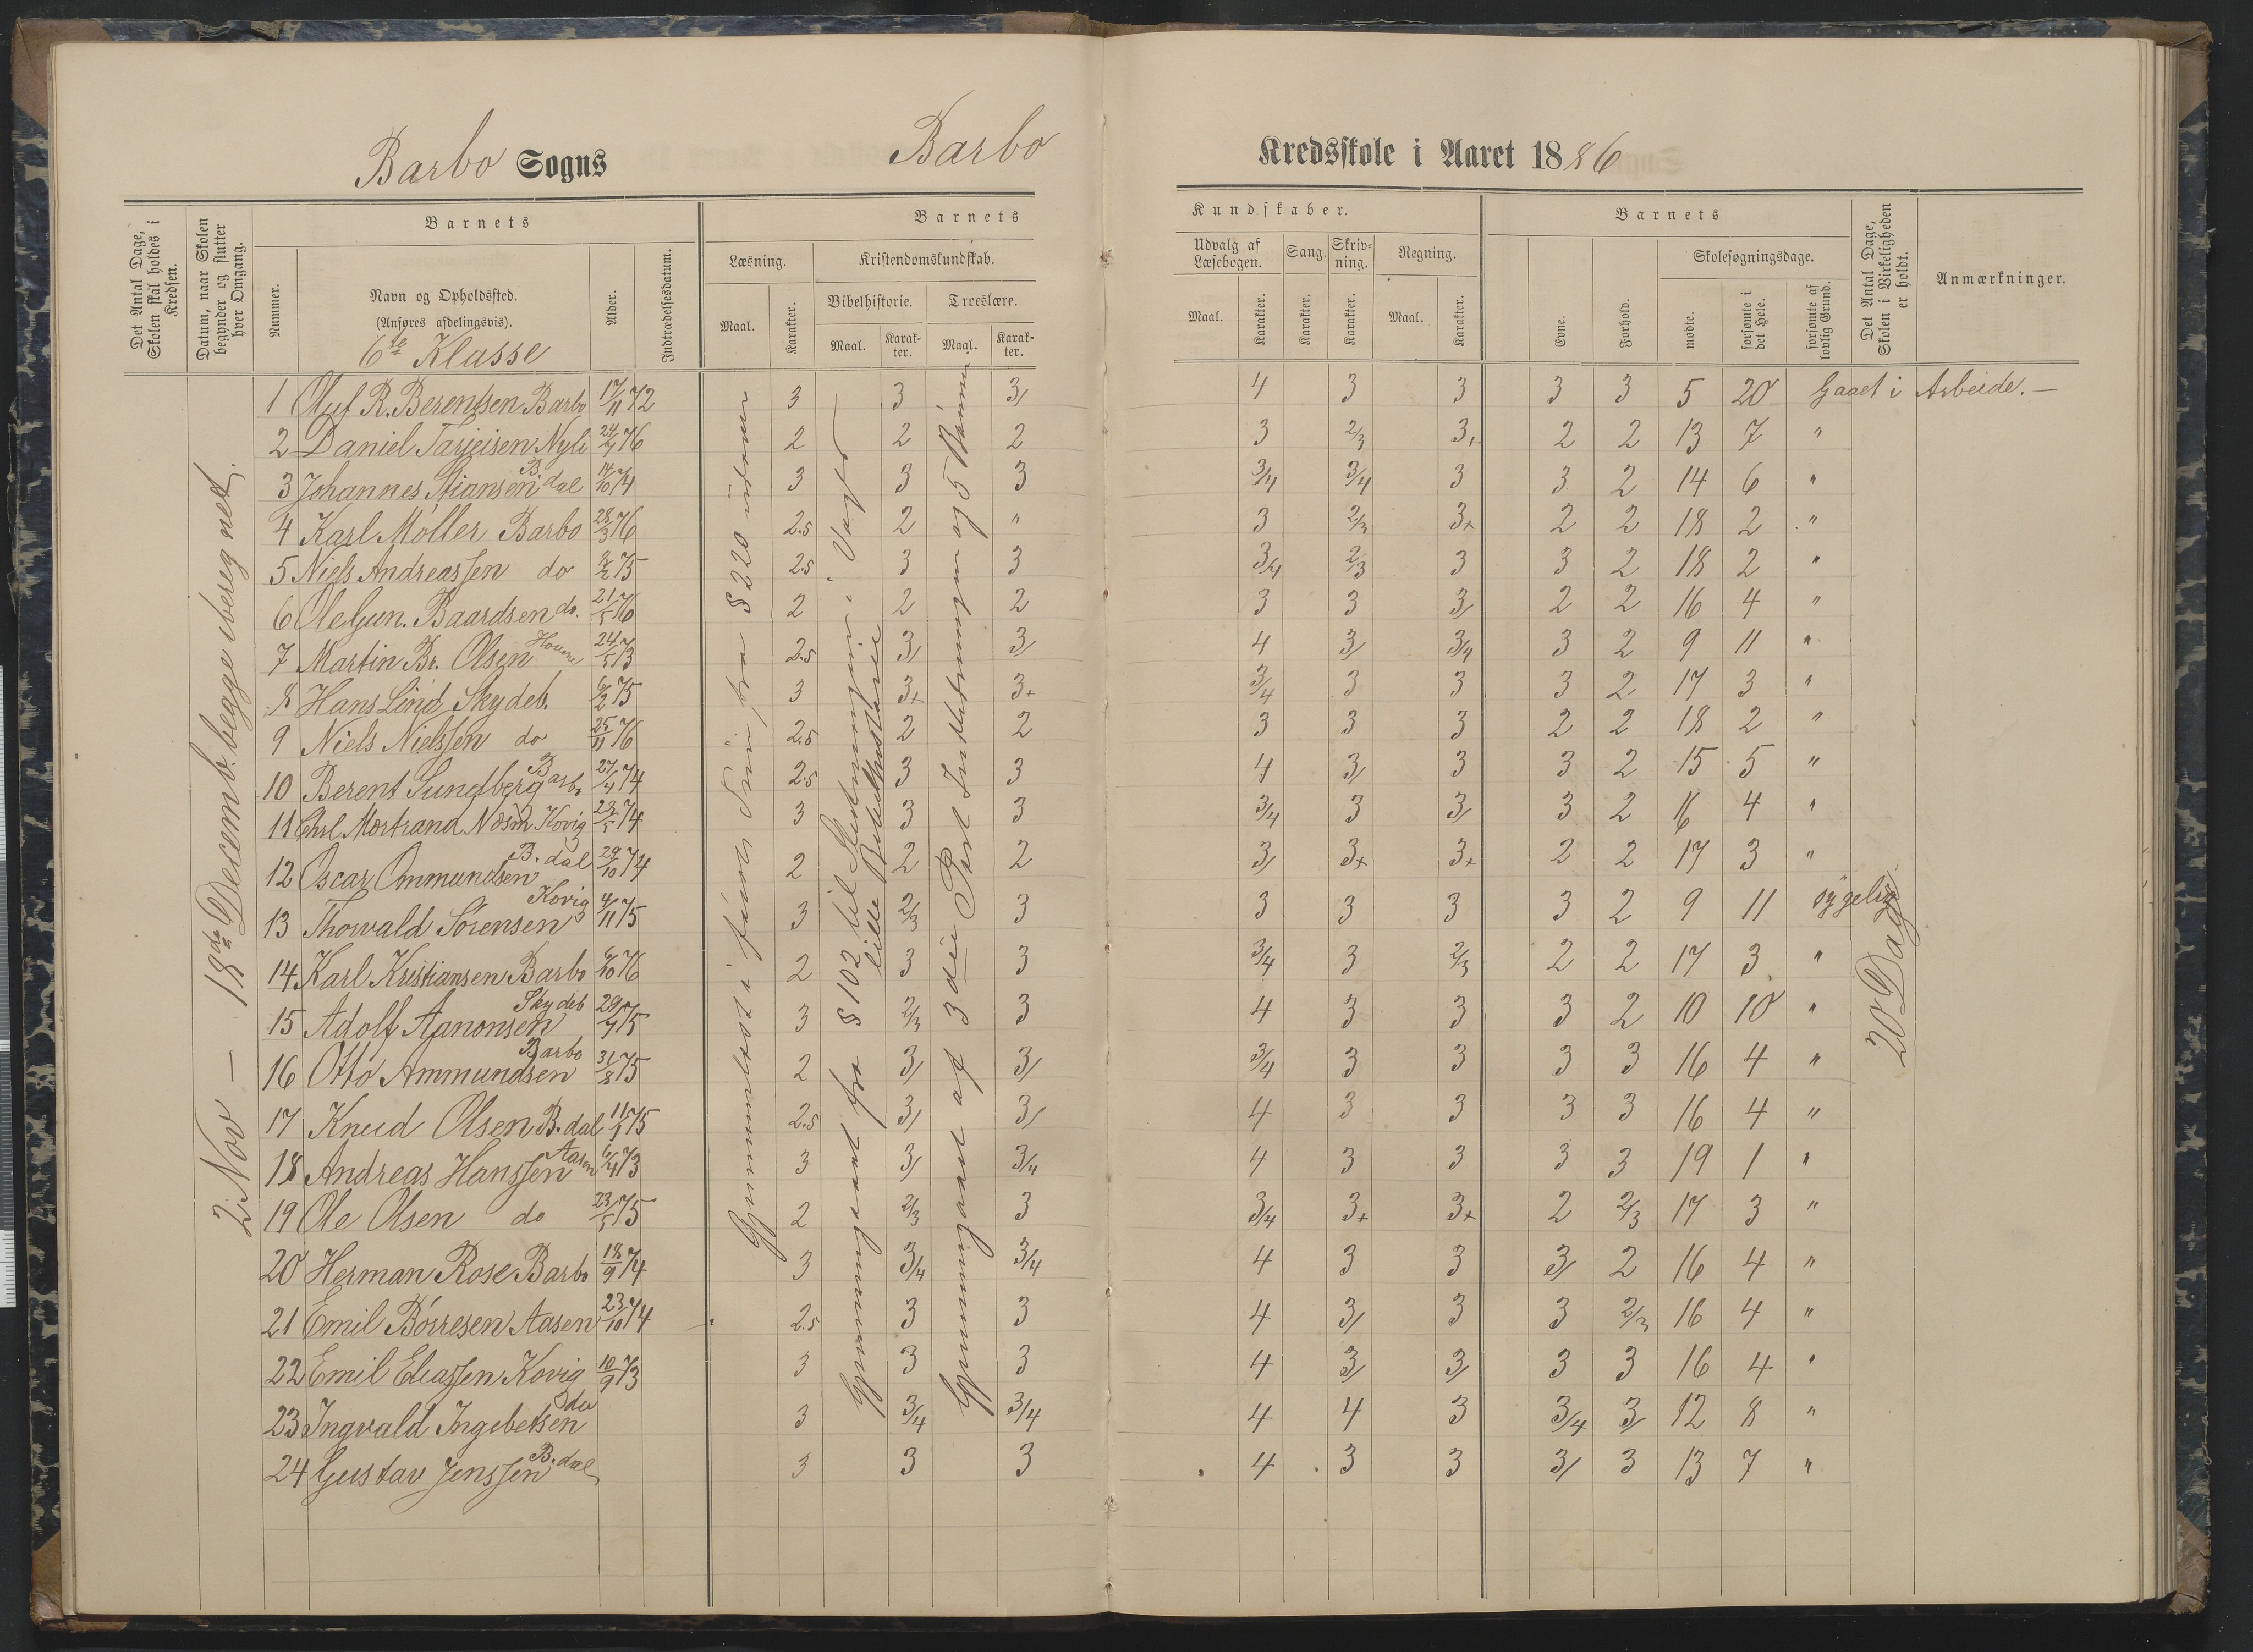 Barbo Sogns
Barbo
Kredsskole i Aaret 1886
Det Antal Dage, Skolen skal holdes i Kredsen.
Datum, naar Skolen begynder og slutter hver Omgang.
Barnets
Nummer.
Navn og Opholdssted.
(Anføres afdelingsvis).
6te Klasse
Alder.
Indtrædelsesdatum.
Barnets
Læsning.
Maal.
Karakter.
Kristendomskundskab.
Bibelhistorie.
Maal.
Karakter.
Troeslære.
Maal.
Karakter.
Kundskaber.
Udvalg af Læsebogen.
Maal.
Karakter.
Sang.
Karakter.
Skrivning.
Karakter.
Regning.
Maal.
Karakter.
Barnets
Evne.
Forhold.
Skolesøgningsdage.
mødte.
forsømte i det Hele.
forsømte af lovlig Grund.
Det Antal Dage, Skolen i Virkeligheden er holdt.
Anmærkninger.
2. Nov — 18de Decemb. begge iberegnet.
§ 102 til
lille
3die Part
og 5
20 Dage
1 Oluf R. Berentsen Barbo 17/11 72 3 3 3/ 4 3 3 3 3 5 20 Gaaet i Arbeide. —
2 Daniel Tarjeisen Nyli 24/7 76 2 2 2 3 2/3 3+ 2 2 13 7 "
3 Johannes Stiansen B.dal 14/10 74 3 3 3 3/4 3/4 3 3 2 14 6 "
4 Karl Møller Barbo 28/3 76 2.5 2 " 3 2/3 3+ 2 2 18 2 "
5 Niels Andreassen do 2/2 75 2.5 3 3 3/4 2/3 3 3 2 18 2 "
6 Ole Gun. Baardsen do. 21/5 76 2 2 2 3 3 3/ 2 2 16 4 "
7 Martin Br. Olsen 24/5 73 2.5 3/ 3/ 4 3/ 3/4 3 2 9 11 "
8 Hans Lind Skydeb. 6/2 75 3 3+ 3+ 3/4 3 3 3 2 17 3 "
9 Niels Nielssen do 25/11 76 2.5 2 2 3 3 3 2 2 18 2 "
10 Berent Sundberg Barbo 27/4 74 2.5 3 3 4 3/ 3 3 2 15 5 "
11 Chrl. Mortrand Kovig 23/5 74 3 3 3 3/4 3 3/ 3 2 16 4 "
12 Oscar Ommundsen B.dal 29/10 74 2 2 2 3/ 3+ 3+ 2 2 17 3 "
13 Thorvald Sørensen Kovig 4/11 75 3 2/3 3 3 3 3 3 2 9 11 sygelig
14 Karl Kristiansen Barbo 6/10 76 2 3 3 3/4 3 2/3 2 2 17 3 "
15 Adolf Aanonsen Skydeb 29/7 75 3 2/3 3 4 3 3 3 2 10 10 "
16 Otto Ammundsen Barbo 31/8 75 2 3/ 3/ 3/4 3 3 3 3 16 4 "
17 Knud Olsen B.dal 11/1 75 2.5 3/ 3/ 4 3 3 3 3 16 4 "
18 Andreas Hanssen Aasen 6/4 73 3 3/ 3/4 4 3 3 3 3 19 1 "
19 Ole Olsen do 23/5 75 2 2/3 3 3/4 3+ 3+ 2 2/3 17 3 "
20 Herman Rose Barbo 18/9 74 3 3/4 3/4 4 3 3 3/ 2 16 4 "
21 Emil Børresen Aasen 23/10 74 2.5 3 3 4 3/ 3 3 2/3 16 4 "
22 Emil Eliassen Kovig 10/9 73 3 3 3 4 3/ 3/ 3 3 16 4 "
23 Ingvald Ingebetsen do 3 3/4 3/4 4 4 3 3/4 3/ 12 8 "
24 Gustav Jenssen B.dal 3 3 3 4 3 3 3/ 3 13 7 "